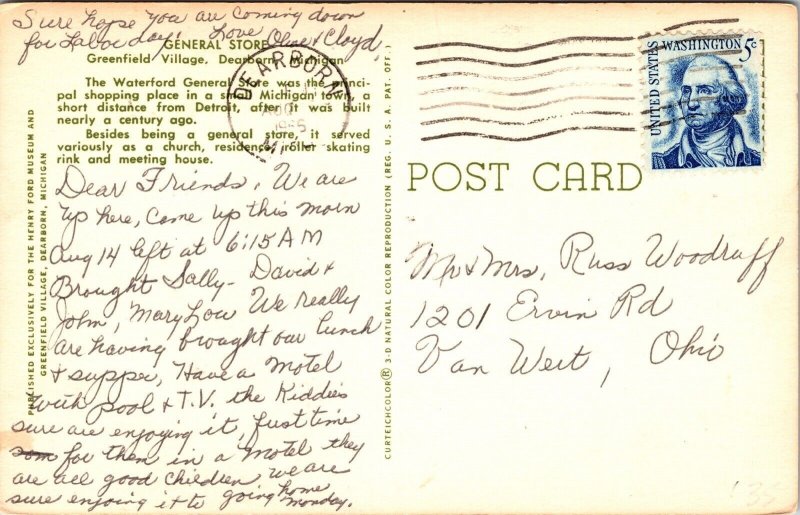 Sure hope you are coming down
for Labor day! Love Olive & Cloyd
GENERAL STORE
Greenfield Village, Dearborn, Michigan
The Waterford General Store was the princi-
pal shopping place in a small Michigan town, a
short distance from Detroit, after it was built
nearly a century ago.
Besides being a general store, it served
variously as a church, residence, roller skating
rink and meeting house.
Dear Friends, We are
up here, came up this morn
Aug 14 left at 6:15 AM
Brought Sally - David &
John, Mary Lou We really
are having brought our lunch
& supper, Have a Motel
with pool & T.V. the Kiddies
sure are enjoying it, first time
for them in a Motel they
are all good children, we are
sure enjoying it to going home
Monday.
PUBLISHED EXCLUSIVELY FOR THE HENRY FORD MUSEUM AND
GREENFIELD VILLAGE, DEARBORN, MICHIGAN
CURTEICHCOLOR® 3-D NATURAL COLOR REPRODUCTION (REG. U. S. A. PAT. OFF.)
DEARBORN
AUG
MI
POST CARD
UNITED STATES
WASHINGTON 5c
Mr & Mrs, Russ Woodruff
1201 Ervin Rd
Van Wert, Ohio